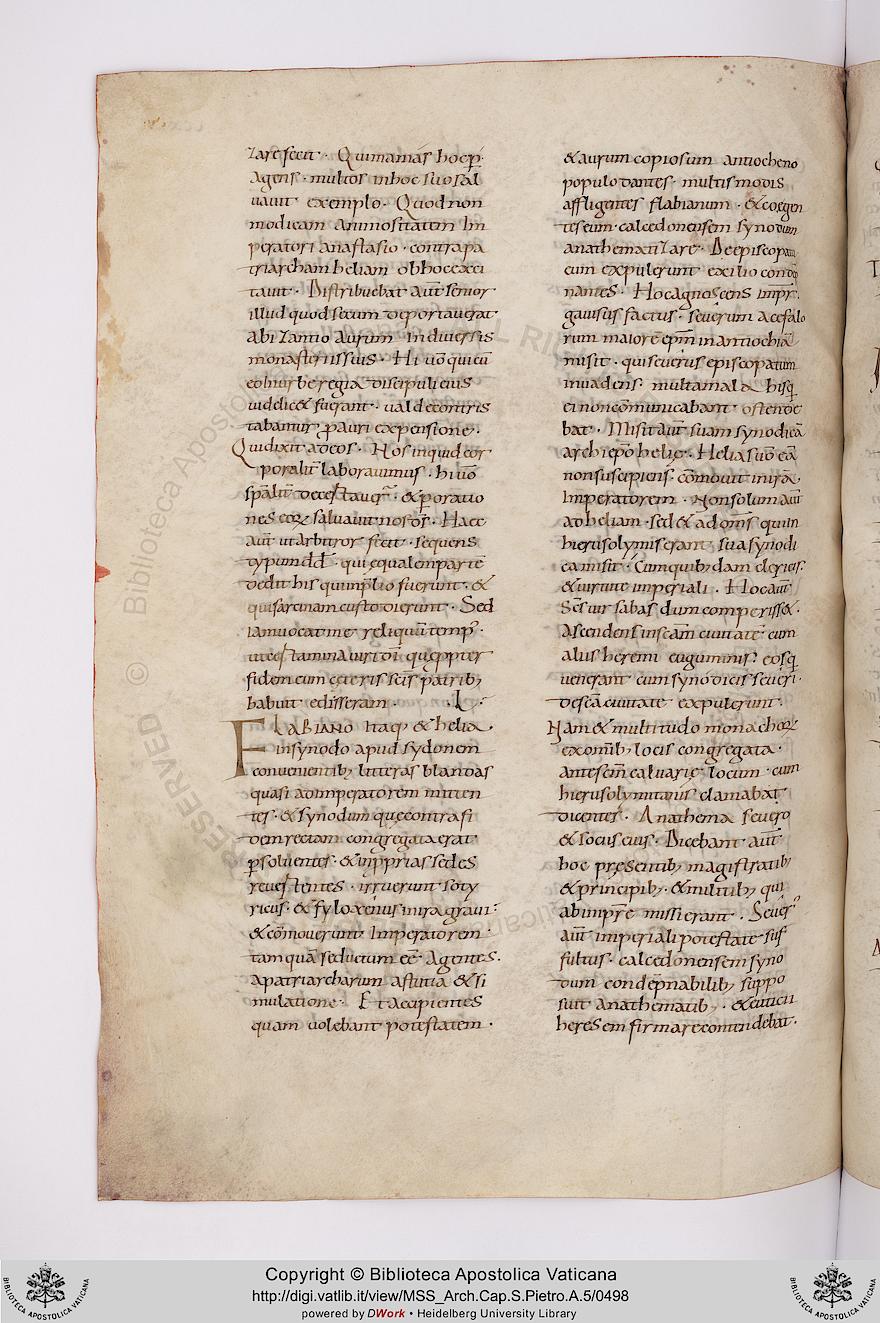 zare fecit · Qui mamas hoc p̄
agens · multos in hoc suo sal
uauit exemplo · Quod non
modicam animositatem Im
peratori anastasio · contra pa
triarcham heliam ob hoc exci
tauit · Distribuebat aut̄ senior
illud quod secum deportauerat
abizantio aurum in diuersis
monasteriis suis · Hi uō qui cū
eo in urbe regia discipuli eius
uidelic& fuerant · ualde contris
tabantur p auri expensione ·
Qui dixit ad eos · Nos inquid cor
poralit̄ laborauimus · hi uō
sp̄alit̄ &p oratio
nes eoꝝ saluauit nos d̄s · Haec
aut̄ ut arbitror fecit · sequens
typum dd̄ · qui equalem partē
dedit his qui in p̄lio fuerunt · &
qui sarcinam custodierunt · Sed
iam uocat me reliquū temp᾽ ·
ut certamina uiri dī quę ppter
fidem cum ceteris sc̄is patrib;
habuit edisseram · L ·
FLABIANO itaq; & helia
in synodo apud sydonem
conuenientib; litteras blandas
quasi ad imperatorem mitten
tes · & synodum quę contra fi
dem rectam congregata erat
psoluentes · & in pprias sedes
reuertentes · irruerunt soty
ricus · & fyloxenus in ira graui ·
& cōmouerunt Imperatorem ·
tam quā seductum eē · Agentes ·
a patriarcharum astutia & si
mulatione · Et accipientes
quam uolebant potestatem ·
& aurum copiosum antiocheno
populo dantes · multis modis
affligentes flabianum · & coegen
tes eum · calcedonensem synodum
anathematizare · De episcopatu
cum expulerunt exilio condē
nantes · Hoc agnoscens impr̄ ·
gauisus factus · seuerum acefalo
rum maiorē ep̄m in antiochiā
misit · qui seuerus episcopatum
inuadens · multa mala his q
ei non cōmunicabant ostende
bat · Misit aut̄ suam synodicā
archiep̄o helię · Helias uō eā
non suscipiens · cōmouit in irā ·
Imperatorem · Non solum aut̄
ad heliam · sed & ad om̄s qui in
hierusolymis erant sua synodi
ca misit · Cum quib;dam clericis ·
& uirtute imperiali · Hoc aut̄
Sc̄s uir sabas dum comperiss& ·
Ascendens in sc̄am ciuitatē cum
aliis heremi euguminis · eos q
uenerant cum synodicis seueri ·
de sc̄a ciuitate expulerunt ·
Nam & multitudo monachoꝝ
ex omnib; locis congregata ·
ante sc̄m caluarię locum · cum
hierusolymitanis clamabat
dicentes · Anathema seuero
& sociis eius · Dicebant aut̄
hoc pręsentib; magistratib;
& principib; · & militib; qui
ab impr̄e missi erant · Seuer᾽
aut̄ imperiali potestate suf
fultus · calcedonensem syno
dum condēpnabilib; suppo
suit anathematib; · & euticii
heresem firmare contendebat ·
Copyright © Biblioteca Apostolica Vaticana
http://digi.vatlib.it/view/MSS_Arch.Cap.S.Pietro.A.5/0498
powered by DWork • Heidelberg University Library